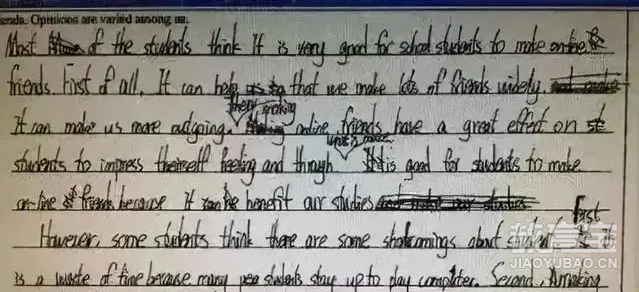 iends. Opinions are varied among us.
Most of the students think It is very good for school students to make on-line
friends. First of all, It can help that we make lots of friends widely.
then making
It can make us more outgoing. online friends have a great effect on
what is more
students to impress theirself feeling and through It is good for students to make
on-line friends because it can be benefit our studies
First
However, some students think there are some shortcomings about student it
is a waste of time because many students stay up to play computer. Second, Amaking
教育宝
JIAOYUBAO.CN